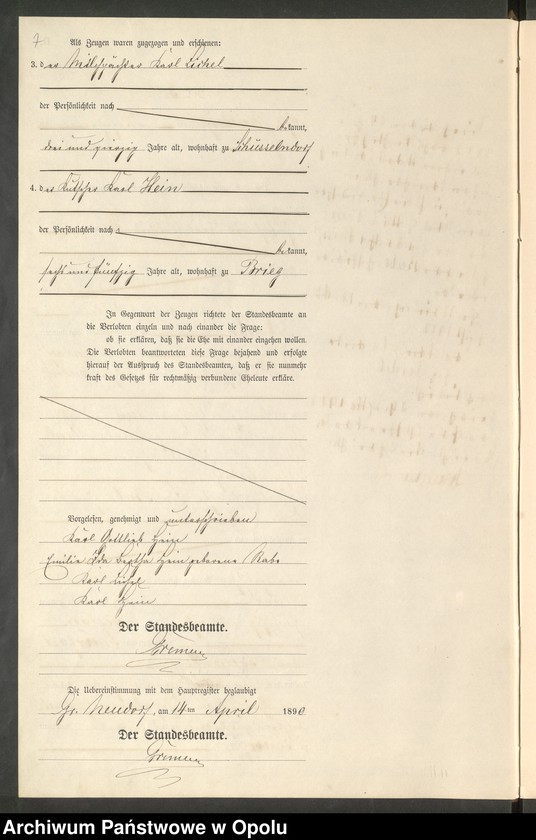 7
Als Zeugen waren zugezogen und erschienen:
3. der Milchpächter Karl Lichel
der Persönlichkeit nach
bekannt,
drei und vierzig Jahre alt, wohnhaft zu Schüsselndorf
4. der Kutscher Karl Hein
der Persönlichkeit nach
bekannt,
sechs und fünfzig Jahre alt, wohnhaft zu Brieg
In Gegenwart der Zeugen richtete der Standesbeamte an
die Verlobten einzeln und nach einander die Frage:
ob sie erklären, daß sie die Ehe mit einander eingehen wollen.
Die Verlobten beantworteten diese Frage bejahend und erfolgte
hierauf der Ausspruch des Standesbeamten, daß er sie nunmehr
kraft des Gesetzes für rechtmäßig verbundene Eheleute erkläre.
Vorgelesen, genehmigt und unterschrieben
Karl Gottlieb Hein
Emilie Ida Bertha Hein geborene Rabe
Karl
Karl Hein
Der Standesbeamte.
Die Uebereinstimmung mit dem Hauptregister beglaubigt
Gr. Neudorf, am 14ten April 1890
Der Standesbeamte.
Archiwum Państwowe w Opolu